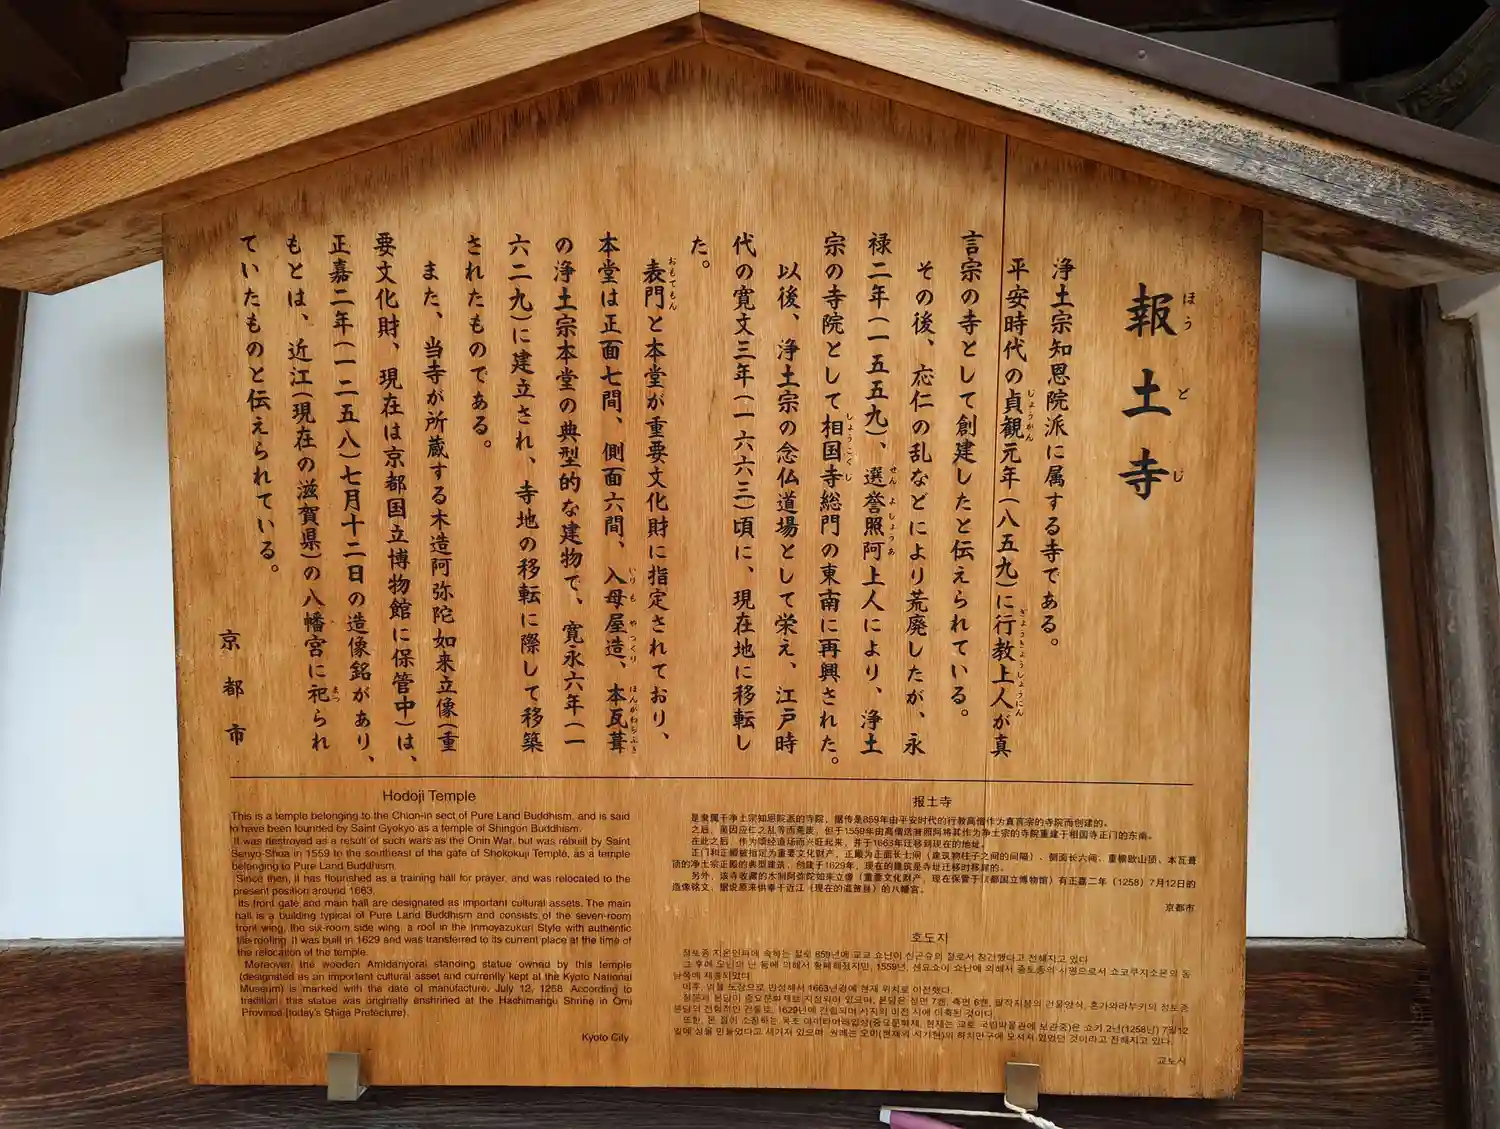 報土寺
ほう ど じ
浄土宗知恩院派に属する寺である。
平安時代の貞観元年(八五九)に行教上人が真
じょうがん
ぎょうきょうしょうにん
言宗の寺として創建したと伝えられている。
その後、応仁の乱などにより荒廃したが、永
禄二年(一五五九)、選誉照阿上人により、浄土
せんよしょうあ
宗の寺院として相国寺総門の東南に再興された。
しょうこくじ
以後、浄土宗の念仏道場として栄え、江戸時
代の寛文三年(一六六三)頃に、現在地に移転し
た。
表門と本堂が重要文化財に指定されており、
おもてもん
本堂は正面七間、側面六間、入母屋造、本瓦葺
いりもやつくり
ほんがわらぶき
の浄土宗本堂の典型的な建物で、寛永六年(一
六二九)に建立され、寺地の移転に際して移築
されたものである。
また、当寺が所蔵する木造阿弥陀如来立像(重
要文化財、現在は京都国立博物館に保管中)は、
正嘉二年(一二五八)七月十二日の造像銘があり、
もとは、近江(現在の滋賀県)の八幡宮に祀られ
まつ
ていたものと伝えられている。
京都市
Hodoji Temple
This is a temple belonging to the Chion-in sect of Pure Land Buddhism, and is said
to have been founded by Saint Gyokyo as a temple of Shingon Buddhism.
It was destroyed as a result of such wars as the Onin War, but was rebuilt by Saint
Senyo-Shoa in 1559 to the southeast of the gate of Shokokuji Temple, as a temple
belonging to Pure Land Buddhism.
Since then, it has flourished as a training hall for prayer, and was relocated to the
present position around 1663.
Its front gate and main hall are designated as important cultural assets. The main
hall is a building typical of Pure Land Buddhism and consists of the seven-room
front wing, the six-room side wing, a roof in the Irimoyazukuri Style with authentic
tile roofing. It was built in 1629 and was transferred to its current place at the time of
the relocation of the temple.
Moreover, the wooden Amidanyorai standing statue owned by this temple
(designated as an important cultural asset and currently kept at the Kyoto National
Museum) is marked with the date of manufacture, July 12, 1258. According to
tradition, this statue was originally enshrined at the Hachimangu Shrine in Omi
Province (today's Shiga Prefecture).
Kyoto City
报土寺
是隶属于净土宗知恩院派的寺院，据传是859年由平安时代的行教高僧作为真言宗的寺院而创建的。
之后，虽因应仁之乱等而荒废，但于1559年由高僧选誉照阿将其作为净土宗的寺院重建于相国寺正门的东南。
在此之后，作为颂经道场而兴旺起来，并于1663年迁移到现在的地址。
正门和正殿被指定为重要文化财产，正殿为正面长七间（建筑物柱子之间的间隔）、侧面长六间，重檐歇山顶、本瓦葺
顶的净土宗正殿的典型建筑，创建于1629年，现在的建筑是寺址迁移时移建的。
另外，该寺收藏的木制阿弥陀如来立像（重要文化财产，现在保管于京都国立博物馆）有正嘉二年（1258）7月12日的
造像铭文，据说原来供奉于近江（现在的滋贺县）的八幡宫。
京都市
호도지
정토종 지온인파에 속하는 절로 859년에 교쿄 쇼닌이 신곤슈의 절로서 창건했다고 전해지고 있다.
이후, 염불 도량으로 번성해서 1663년경에 현재 위치로 이전했다.
교토시